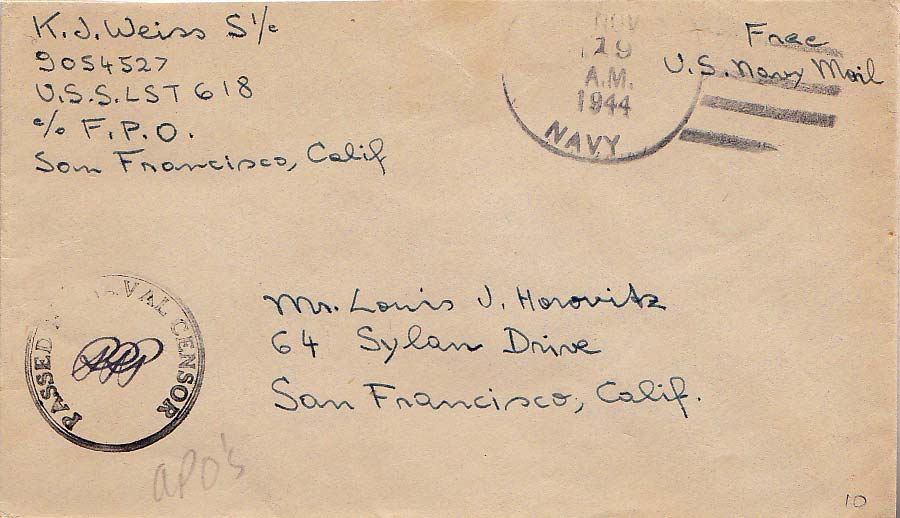 K. J. Weiss S 1/c
9054527
U.S.S. LST 618
c/o F.P.O.
San Francisco, Calif
NOV
19
A.M.
1944
NAVY
Free
U.S. Navy Mail
PASSED BY NAVAL CENSOR
Mr. Louis J. Horovitz
64 Sylan Drive
San Francisco, Calif.
APO's
10